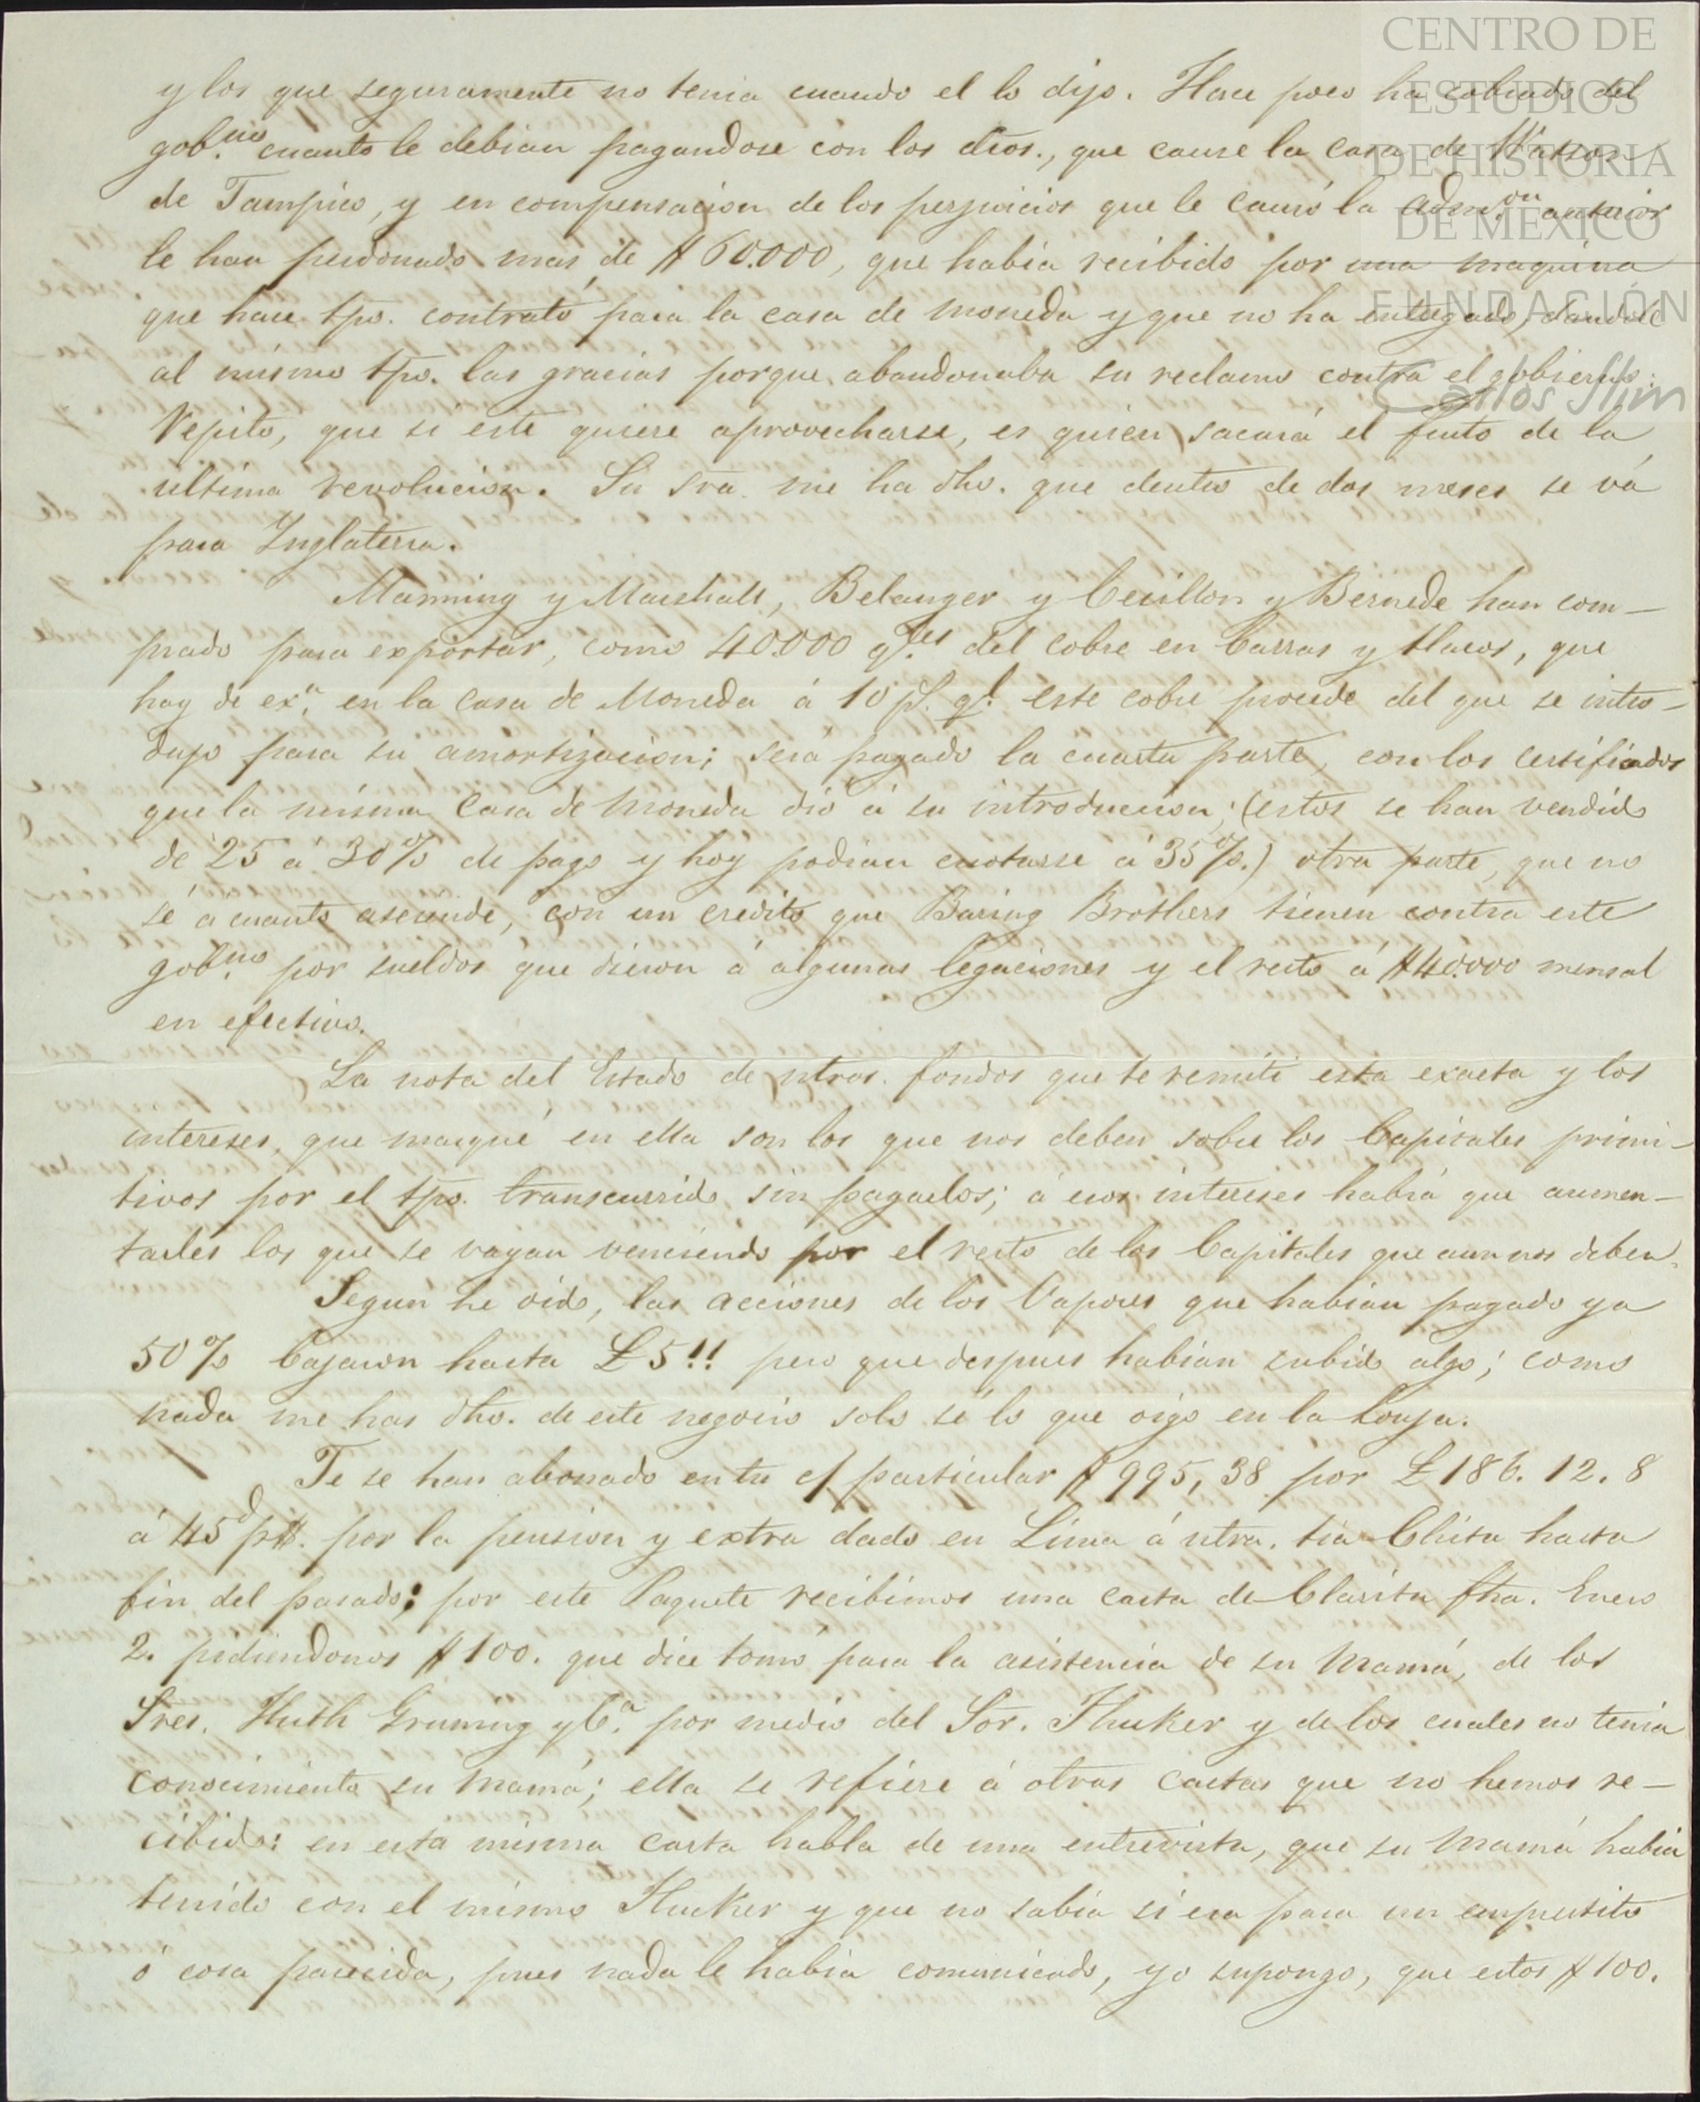 y los que seguramente no tenia cuando el lo dijo. Hace poco ha cobrado del
gob.no cuanto le debian pagandose con los dros., que cause la casa de Watson
de Tampico, y en compensacion de los perjuicios que le causó la adm.on anterior
le han perdonado mas de $60.000, que habia recibido por una maquina
que hace tpo. contrató para la casa de moneda y que no ha entregado, dandole
al mismo tpo. las gracias porque abandonaba su reclamo contra el gobierno:
Vepito, que si este quiere aprovecharse, es quien sacará el fruto de la
ultima revolucion. Su sra. me ha dho. que dentro de dos meses se vá
para Inglaterra.
Manning y Marshall, Belanger y Cecillon y Bernede han com-
prado para exportar, como 40.000 q.les del cobre en barras y tlacos, que
hay de ex.a en la casa de Moneda á 10 ps. ql. este cobre procede del que se intro-
dujo para su amortizacion; será pagado la cuarta parte, con los certificados
que la misma Casa de Moneda dió á su introduccion; (estos se han vendido
de 25 á 30% de pago y hoy podian cuotarse á 35%.) otra parte, que no
sé a cuanto asciende, con un credito que Baring Brothers tienen contra este
gob.no por sueldos que dieron á algunas legaciones y el resto á $40.000 mensal
en efectivo.
La nota del Estado de ntros. fondos que te remiti esta exacta y los
intereses, que marqué en ella son los que nos deben sobre los Capitales primi-
tivos por el tpo. transcurrido sin pagarlos; á esos intereses habrá que aumen-
tarles los que se vayan venciendo por el resto de los Capitales que aun nos deben.
Segun he oido, las acciones de los Vapores que habian pagado ya
50% bajaron hasta £5!! pero que despues habian subido algo; como
nada me has dho. de este negocio solo sé lo que oigo en la Lonja.
Te se han abonado en tu c/ particular $995,38 por £186.12.8
á 45d p$. por la pension y extra dado en Lima á ntra. tia Chita hasta
fin del pasado; por este Paquete recibimos una carta de Clarita fha. Enero
2. pidiendonos $100. que dice tomó para la asistencia de su Mamá, de los
Sres. Huth Gruning y C.a por medio del Sor. Thucker y de los cuales no tenia
conocimiento su mamá; ella se refiere á otras cartas que no hemos re-
cibido: en esta misma carta habla de una entrevista, que su Mamá habia
tenido con el mismo Thucker y que no sabia si era para un emprestito
ó cosa parecida, pues nada le habia comunicado, yo supongo, que estos $100.
CENTRO DE
ESTUDIOS
DE HISTORIA
DE MÉXICO
FUNDACIÓN
Carlos Slim